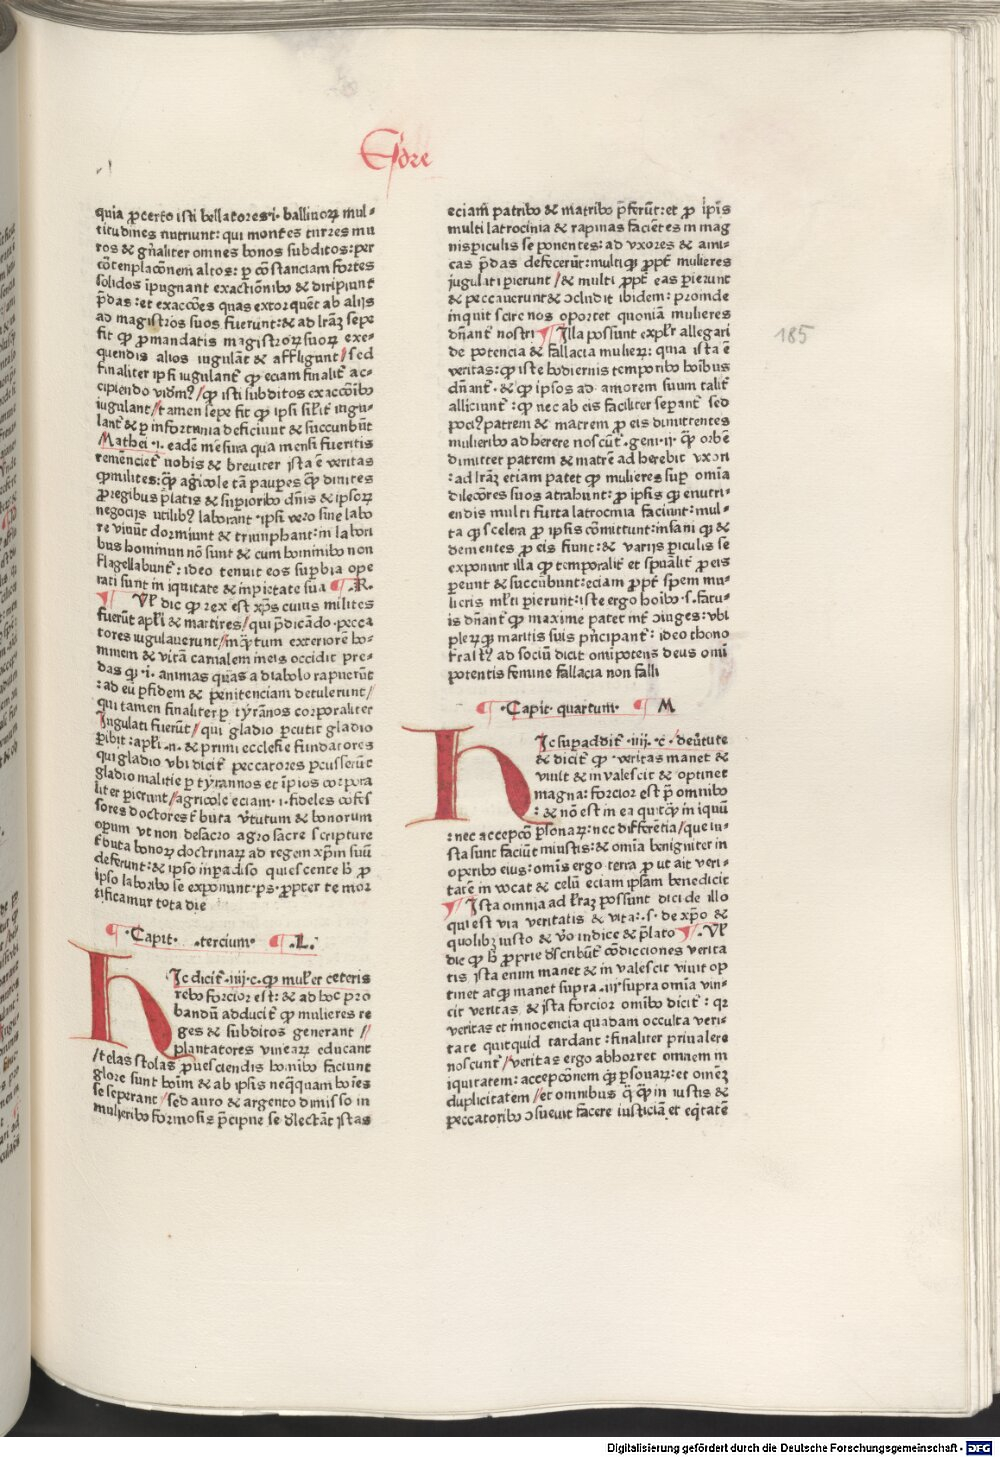 Esdre
quia ꝓcerto isti bellatores·i· ballinoꝝ mul⸗
titudines nutriunt: qui montes turres mu
ros & gn̄aliter omnes bonos subditos: per
cōtenplacōnem altos: ꝑ cōstanciam fortes
solidos īpugnant exactiōnibꝰ & diripiunt
p̄das: et exaccōes quas extorquēt ab alijs
ad magistros suos fuerunt: & ad lr̄aꝫ sepe
fit ꝙ ꝓmandatis magistroꝝ suoꝝ exe⸗
quendis alios iugulāt & affligunt/ sed
finaliter ipsi iugulant̄ ꝙ eciam finalit̄ ac⸗
cipiendo vidm̄?/ ꝙ isti subditos exaccōibꝰ
iugulant/ tamen sepe fit ꝙ ipsi sil̄it iugu⸗
lant̄ & ꝑ infortunia deficiunt & succunbūt
Mathei ·i· eadē mēsura qua mensi fueritis
remēnciet̄ nobis & breuiter ista ē veritas
ꝙmilites: ꝙ̄ agricole tā pauꝑes ꝙ̄ diuites
ꝓregibus p̄latis & suꝑioribꝰ dn̄is & ipsoꝝ
negocijs vtilibꝰ laborant · ipsi vero sine labo
re viuūt dormiunt & triumphant: in labori
bus hominun nō sunt & cum hominibꝰ non
flagellabunt̄: ideo tenuit eos suꝑbia ope
rati sunt in iqvitate & inpietate sua ¶ ·R·
¶ Vl̄ dic ꝙ rex est xp̄s cuius milites
fuerūt apl̄i & martires/ qui p̄dicādo · pecca
tores iugulauerunt/ inꝙ̄tum exteriorē ho⸗
minem & vitā carnalem ineis occidit pre⸗
das ꝙ ·i· animas quas a diabolo rapuerūt
: ad eū ꝑfidem & penitenciam detulerunt/
qui tamen finaliter ꝑ tyrānos corporaliter
Iugulati fuerūt/ qui gladio ꝑcutit gladio
ꝑibit: apl̄i ·n· & primi ecclesie fundatores
qui gladio vbi dicit̄ peccatores ꝑcusserūt
gladio malitie ꝑ tyrannos et īpios corpora
liter ꝑierunt/ agricole eciam ·i· fideles cōfes
sores doctores t̄buta v̄tutum & bonorum
opum vt non desacro agro sacre scripture
t̄buta bonoꝝ doctrinaꝝ ad regem xp̄m suū
deferunt: & ipso inꝑadiso quiescente h̄ ꝓ
ipso laboribꝰ se exponunt · ps · ꝓpter te mor
tificamur tota die
¶ ·Capit· ·tercium· ¶ ·L·
HIc dicit̄ ·iiij·c· ꝙ mul̄er ceteris
rebꝰ forcior est: & ad hoc pro
bandū adducit̄ ꝙ mulieres re
ges & subditos generant //
plantatores vineaꝝ educant
/telas stolas ꝓuesciendis hoībꝰ faciunt
glore sunt hoīm & ab ipsis neq̄quam hoīes
se seperant/ sed auro & argento dimisso in
mulieribꝰ formosis p̄cipue se dlectāt istas
eciam̄ patribꝰ & matribꝰ p̄ferūt: et ꝓ ip̄is
multi latrocinia & rapinas faciētes in mag
nisꝑiculis se ponentes: ad vxores & ami⸗
cas p̄das defecerūt: multiqꝫ ꝓpt̄ mulieres
iugulati ꝑierunt/ & multi ꝓpt̄ eas ꝑierunt
& peccauerunt & ↄcludit ibidem: proinde
inquit scire nos oportet quoniā mulieres
dn̄ant̄ nostri ¶ Illa possunt expl̄r allegari
de potencia & fallacia mulieꝝ: quia ista ē
veritas: ꝙ iste hodiernis temporibꝰ hoībus
dn̄ant̄ · & ꝙ ipsos ad amorem suum talit̄
alliciunt̄: ꝙ nec ab eis faciliter seꝑant̄ sed
poci? patrem & matrem ꝓ eis dimittentes
mulieribꝰ adherere noscūt̄ · geni·ij· ꝙ̄ orbē
dimittet patrem & matrē adherebit vxori
: ad lr̄aꝫ etiam patet ꝙ mulieres suꝑ omīa
dilecōres suos atrahunt: ꝓ ipsis ꝙ enutri⸗
endis multi furta latrocinia faciunt: mul⸗
ta ꝙ scelera ꝓ ipsis cōmittunt: insani ꝙ &
dementes ꝓ eis fiunt: & varijs ꝑiculis se
exponunt illa ꝙ temporalit̄ et spūalit̄ ꝓ eis
ꝑeunt & succūbunt: eciam ꝓpt̄ spem mu⸗
lieris ml̄ti ꝑierunt: iste ergo hoībꝰ ·s· fatu⸗
is dn̄ant̄ ꝙ maxime patet int̄ ↄiuges: vbi
pleꝝqꝫ maritis suis pn̄cipant̄: ideo
ad sociū dicit omīpotens deus omī
potentis femine fallacia non falli
¶ ·Capit· quartum· ¶ M
HIc suꝑaddit̄ ·iiij· c· de v̄tute
& dicit̄ ꝙ · veritas manet &
viuit & inualescit & optinet
magna: forcior est p̄ omnibꝰ
: & nō est in ea quitꝙ̄ iniquū
: nec accepcō ꝑsonaꝝ: nec differētia/ que in⸗
iusta sunt faciūt miustis: & omīa benigniter in
operibꝰ eius: omīs ergo terra ꝓ ut ait veri⸗
tatē invocat & celū eciam ipsam benedicit
¶ Ista omnia ad lr̄aꝫ possūnt dici de illo
qui est via veritatis & vita: ·s· de xp̄o &
quolibꝫ iusto & v̄o iudice & p̄lato ¶ · Vl̄
dic ꝙ h̄ ꝓprie dscribūt̄ cōdicciones verita
tis ista enim manet & inualescit viuit op
tinet atqꝫ manet supra ·iij· supra omīa vin⸗
cit veritas & ista forcior omībꝰ dicit̄: qꝛ
veritas et innocencia quadam occulta veri⸗
tate quitquid tardant: finaliter priualere
noscunt̄/ veritas ergo abhorret omnem in
iquitatem: accepcōnem ꝙ̄ ꝑsonaꝝ: et omēꝫ
duplicitatem/ et omnibus q̄ ꝙ̄ in iustis &
peccatoribꝰ ↄsueuit facere iusticiā et eq̄tatē
185
Digitalisierung gefördert durch die Deutsche Forschungsgemeinschaft - DFG